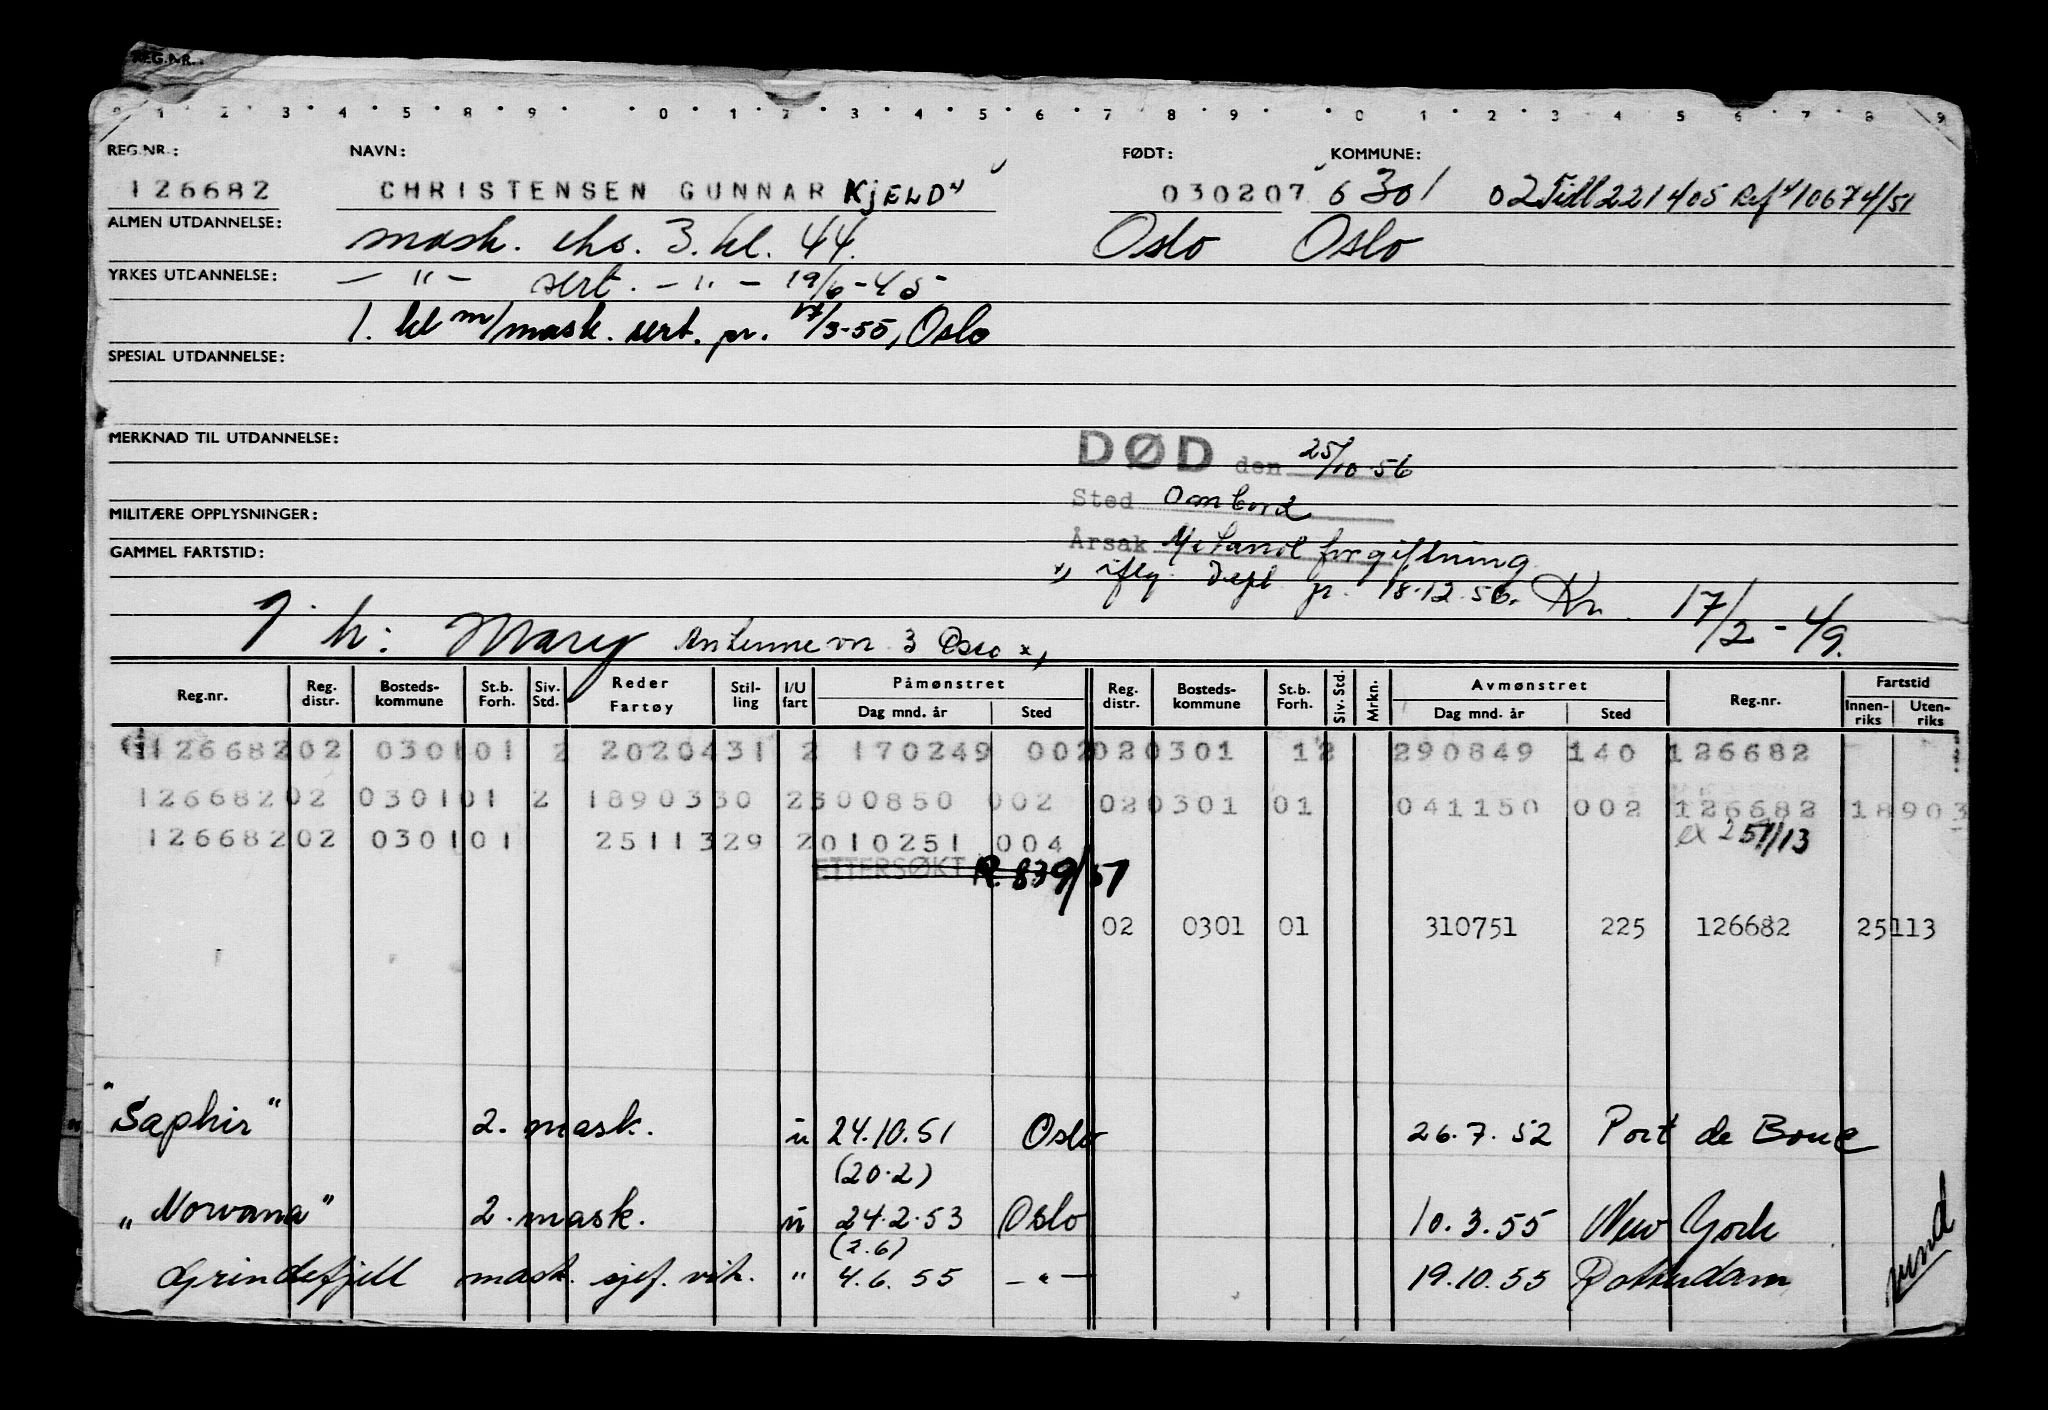 REG.NR.:
0 1 2 3 4 5 8 9 0 1 2 3 4 5 6 7 8 9 0 1 2 3 4 5 6 7 8 9
REG.NR.: NAVN: FØDT: KOMMUNE:
126682 CHRISTENSEN GUNNAR KjELD 030207 6 301 02 Tidl 221405 Ref 10674/51
ALMEN UTDANNELSE: mask. eks. 3. kl. 44. Oslo Oslo
YRKES UTDANNELSE: — " — sert. — " — 19/6-45
1. kl m/mask. sert. pr. 17/3-55, Oslo
SPESIAL UTDANNELSE:
MERKNAD TIL UTDANNELSE:
DØD den 25/10 56
Sted Ombord
MILITÆRE OPPLYSNINGER:
Årsak Metanol forgiftning
GAMMEL FARTSTID:
x) iflg. Depl. pr. 18.12.56. Kr. 17/2-49.
h: Mary Antennevn 3 Oslo x)
Reg.nr. Reg. distr. Bosteds-kommune St.b. Forh. Siv. Std. Reder Fartøy Stil-ling I/U fart Påmønstret Dag mnd. år Sted Reg. distr. Bosteds-kommune St.b. Forh. Siv. Std. Mrkn. Avmønstret Dag mnd. år Sted Reg.nr. Fartstid Innen-riks Uten-riks
126682 02 0301 01 2 2020431 2 170249 002 02 0301 12 290849 140 126682
126682 02 0301 01 2 1890330 2 300850 002 02 0301 01 041150 002 126682 18903
126682 02 0301 01 2511329 2 010251 004 ex 251/13
ETTERSØKT R 839/51
02 0301 01 310751 225 126682 25113
"Saphir" 2. mask. u 24.10.51 Oslo 26.7.52 Port de Bouc
(20.2)
"Norvana" 2. mask. u 24.2.53 Oslo 10.3.55 New York
(2.6)
Grindefjell mask. sjef. vik. " 4.6.55 — " — 19.10.55 Rotterdam